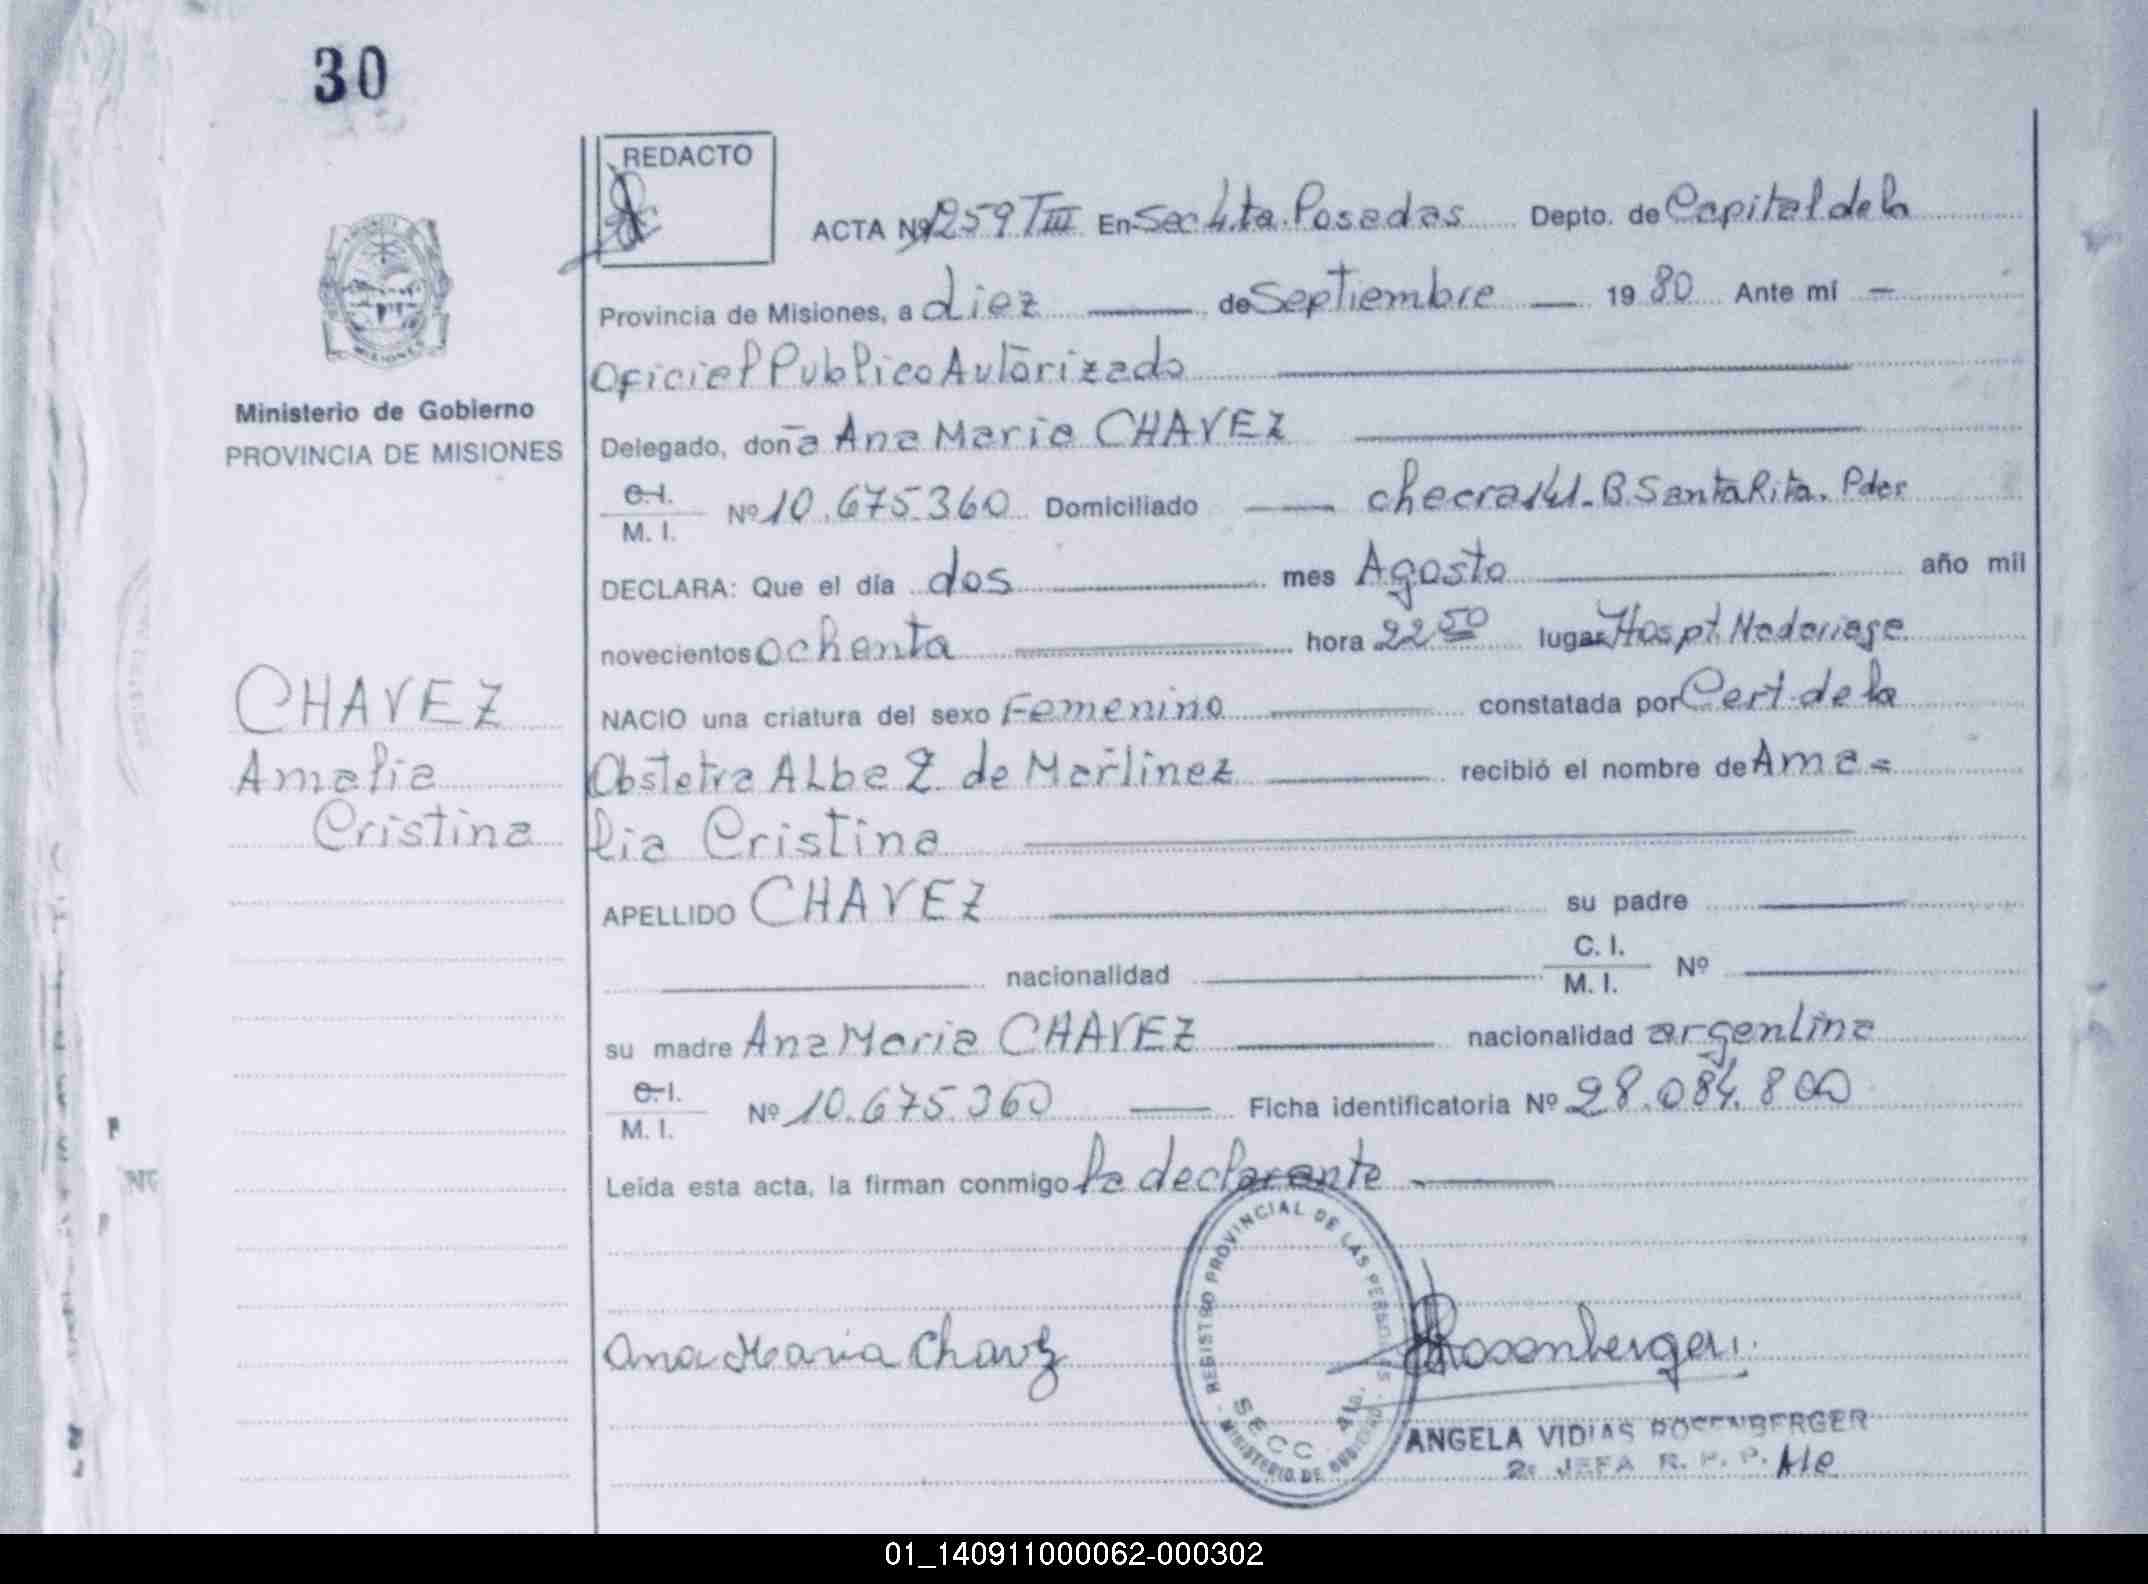 30
REDACTO
ACTA Nº 1259 TIII En Sec 4.ta. Posadas Depto. de Capital de la
Provincia de Misiones, a diez de Septiembre 1980 Ante mí
Oficial Publico Autorizado
Ministerio de Gobierno
PROVINCIA DE MISIONES
Delegado, doña Ana Maria CHAVEZ
C.I.
M. I. Nº 10.675.360 Domiciliado checra 141-B. Santa Rita. Pdas
DECLARA: Que el día dos mes Agosto año mil
novecientos ochenta hora 22.50 lugar Hospt. Madariaga
NACIO una criatura del sexo Femenino constatada por Cert. de la
Obstetra ALba Z. de Martinez recibió el nombre de Ama=
lia Cristina
CHAVEZ
Amalia
Cristina
APELLIDO CHAVEZ su padre
nacionalidad C. I.
M. I. Nº
su madre Ana Maria CHAVEZ nacionalidad argentina
C.I.
M. I. Nº 10.675.360 Ficha identificatoria Nº 28.084.800
Leída esta acta, la firman conmigo la declarante
REGISTRO PROVINCIAL DE LAS PERSONAS
MINISTERIO DE GOBIERNO
SECC. 4ta.
Ana Maria Chavez
Rosenberger
ANGELA VIDIAS ROSENBERGER
2ª JEFA R. P. P. Ale
01_140911000062-000302